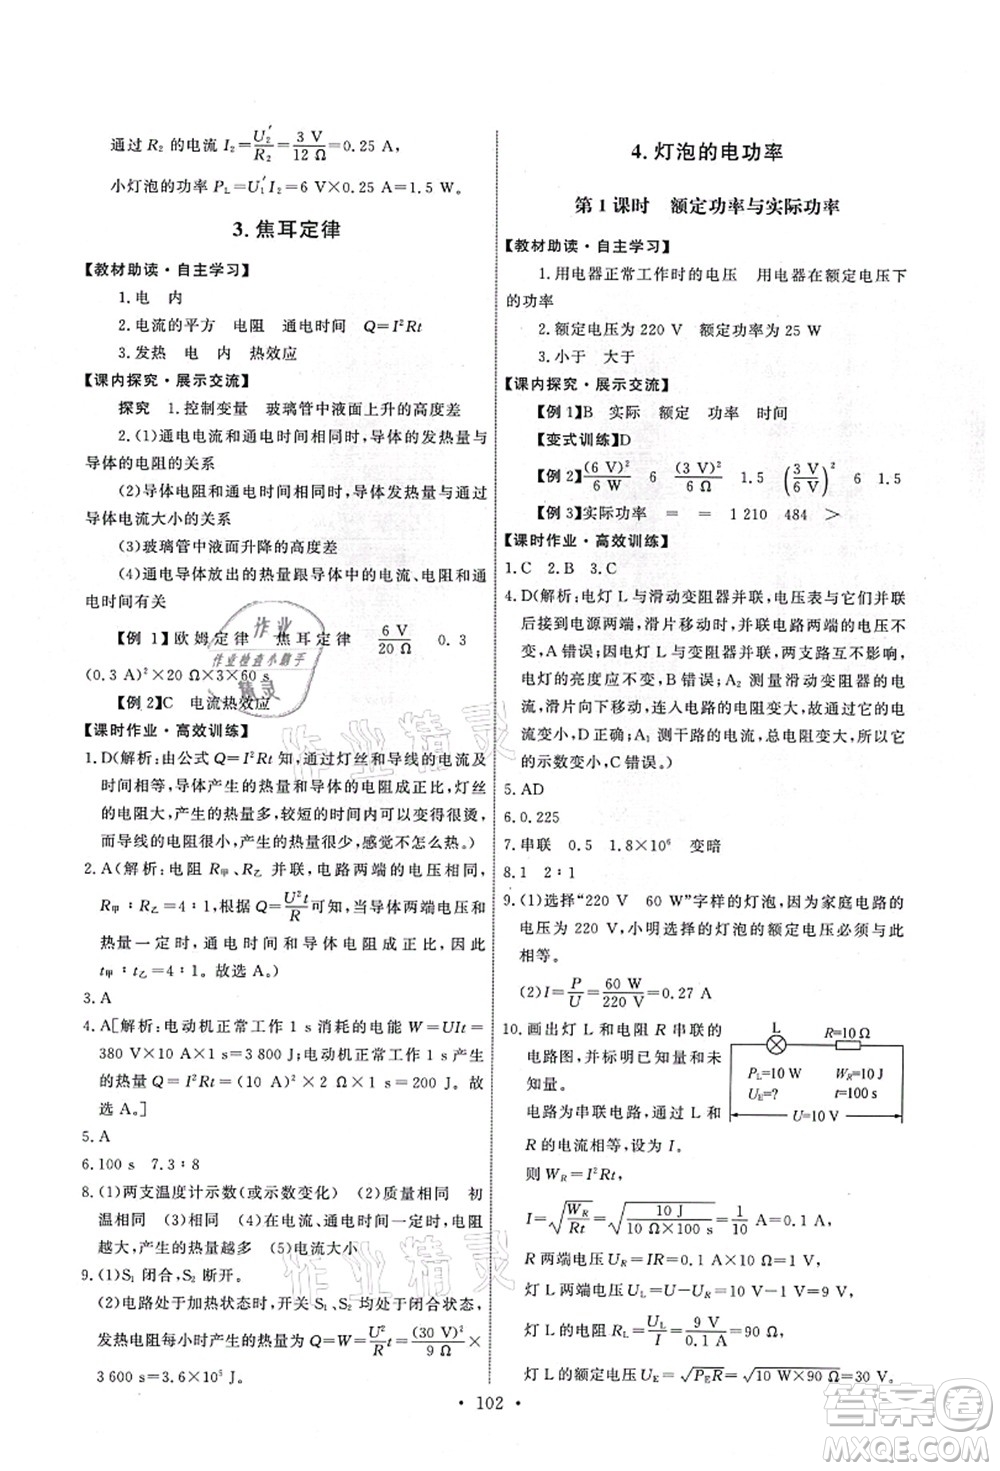 通过 R₂ 的电流 I₂=U₂′/R₂=3 V/12 Ω=0.25 A,
小灯泡的功率 P_L=U₁′I₂=6 V×0.25 A=1.5 W。
3.焦耳定律
【教材助读·自主学习】
1.电 内
2.电流的平方 电阻 通电时间 Q=I²Rt
3.发热 电 内 热效应
【课内探究·展示交流】
探究 1.控制变量 玻璃管中液面上升的高度差
2.(1)通电电流和通电时间相同时,导体的发热量与
导体的电阻的关系
(2)导体电阻和通电时间相同时,发热量与通过
导体电流大小的关系
(3)玻璃管中液面升降的高度差
(4)通电导体放出的热量跟导体中的电流、电阻和通
电时间有关
【例 1】欧姆定律 焦耳定律 6 V/20 Ω 0.3
(0.3 A)²×20 Ω×3×60 s
【例 2】C 电流热效应
【课时作业·高效训练】
1.D(解析:由公式 Q=I²Rt 知,通过灯丝和导线的电流
相等,导体产生的热量和导体的电阻成正比。灯丝
的电阻大,产生的热量多,较短的时间可以变得很烫,
而导线的电阻很小,产生的热量少,感觉不怎么热。)
2.A(解析:电阻 R甲、R乙 并联,电路两端的电压相等。
R甲∶R乙=4∶1,根据 Q=U²t/R 可知,当导体两端电压和
热量一定时,通电时间和导体电阻成正比,
t甲∶t乙=4∶1。故选 A。)
3.A
4.A[解析:电动机正常工作 1 s 消耗的电能 W=UIt=
380 V×10 A×1 s=3 800 J;电动机正常工作 1 s 产生
的热量 Q=I²Rt=(10 A)²×2 Ω×1 s=200 J。故
选 A。]
5.A
6.100 s 7.3∶8
8.(1)两支温度计示数(或示数变化) (2)质量相同 初
温相同 (3)相同 (4)在电流、通电时间一定时,电阻
越大,产生的热量越多 (5)电流大小
9.(1)S₁ 闭合,S₂ 断开。
(2)电路处于加热状态时,开关 S₁、S₂ 均处于闭合状态,
发热电阻每小时产生的热量为 Q=W=U²/R t=(30 V)²/9 Ω×
3 600 s=3.6×10⁵ J。
4.灯泡的电功率
第 1 课时 额定功率与实际功率
【教材助读·自主学习】
1.用电器正常工作时的电压 用电器在额定电压下
的功率
2.额定电压为 220 V 额定功率为 25 W
3.小于 大于
【课内探究·展示交流】
【例 1】B 实际 额定 功率 时间
【变式训练】D
【例 2】(6 V)²/6 W 6 (3 V)²/6 Ω 1.5 (3 V/6 V)² 6 1.5
【例 3】实际功率 = = 1 210 484 >
【课时作业·高效训练】
1.C 2.B 3.C
4.D(解析:电灯 L 与滑动变阻器并联,电压表与电灯
并联后接到电源两端,滑片移动时,并联电路两端电压
不变,A 错误;两支路互不影响,所以
电灯的亮度应不变,B 错误;A₂ 测量滑动变阻器的电
流,滑片右移时,连入电路的电阻变大,电流变小,示数
变小,D 正确;A₁ 测干路的电流,应变小,所以 A₁
的示数应变小,C 错误。)
5.AD
6.0.225
7.串联 0.5 1.8×10⁶ 变暗
8.1 2∶1
9.(1)选择“220 V 60 W”字样的灯泡,因为家庭电路的
电压为 220 V,小明选择的灯泡的额定电压必须与此
相符。
(2)I=P/U=60 W/220 V≈0.27 A
10.画出灯 L 和电阻 R 串联的
电路图,并标明已知量和未
知量。
电路为串联电路,通过 L 和
R 的电流相等,设为 I。
L R=10 Ω
P_L=10 W W_R=10 J
U_E=? t=100 s
U=10 V
则 W_R=I²Rt
I=√(W_R/Rt)=√(10 J/(10 Ω×100 s))=1/10 A=0.1 A
R 两端电压 U_R=IR=0.1 A×10 Ω=1 V
灯 L 两端电压 U_L=U-U_R=10 V-1 V=9 V
灯 L 的电阻 R_L=U_L/I=9 V/0.1 A=90 Ω
灯 L 的额定电压 U_E=√(P_E R)=√(10 W×90 Ω)=30 V。
• 102 •
作业
作业检查小助手
精灵
作业精灵
作业精灵
答案卷
MXQE.COM